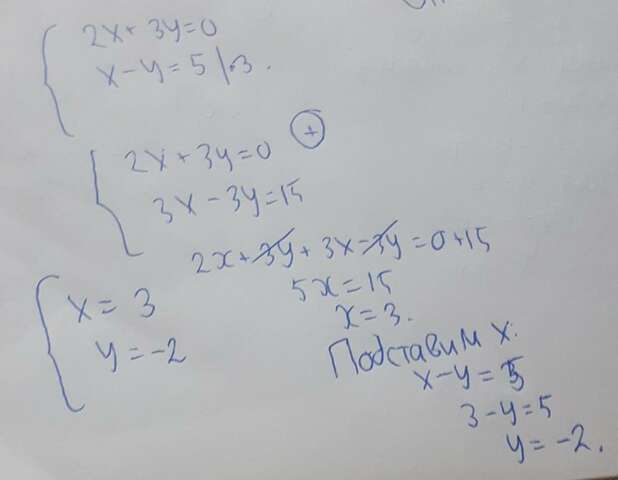 2x + 3y = 0
x - y = 5 | ·3.
2x + 3y = 0 +
3x - 3y = 15
2x + 3y + 3x - 3y = 0 + 15
5x = 15
x = 3.
x = 3
y = -2
Подставим x:
x - y = 5
3 - y = 5
y = -2.